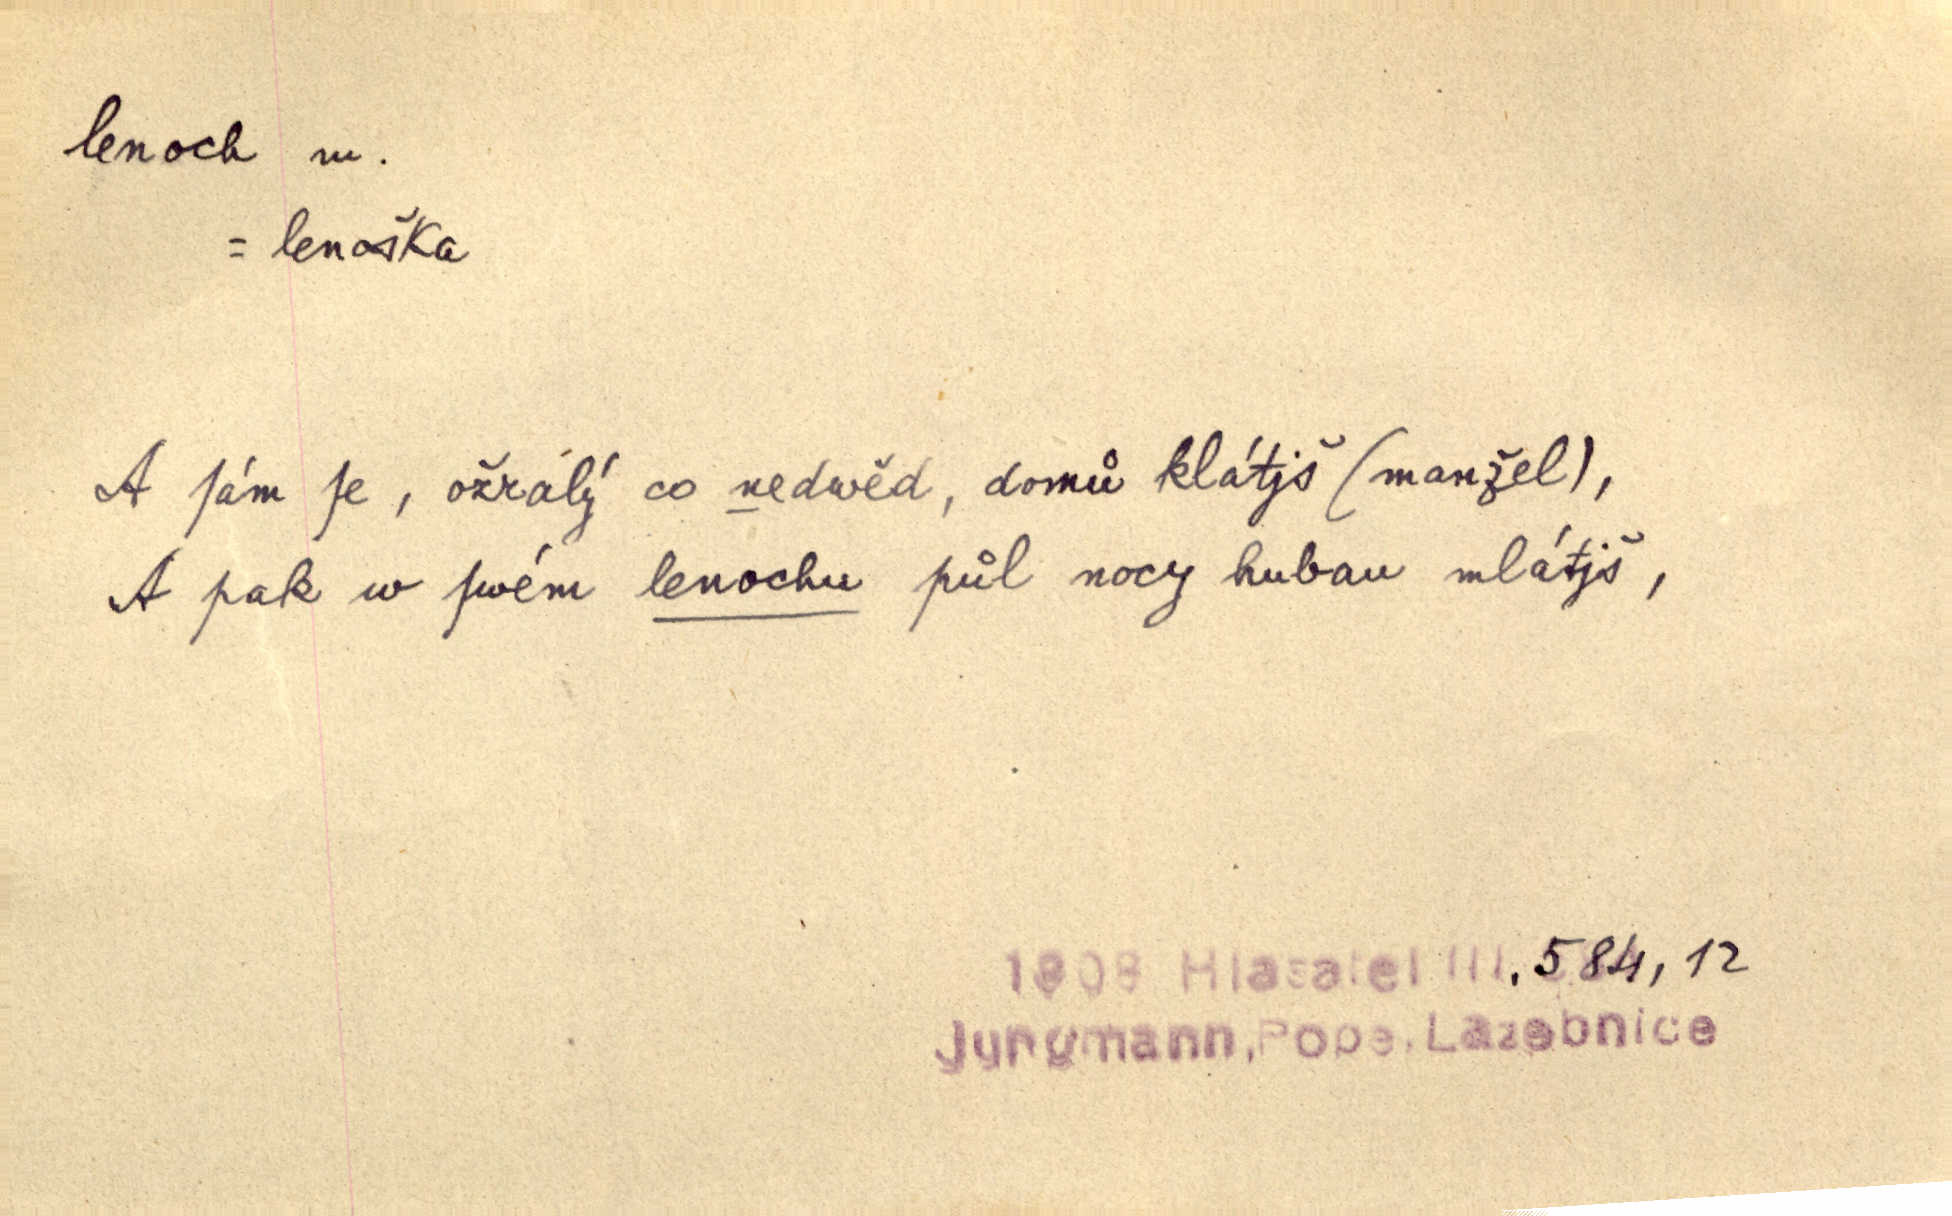 lenoch m.
= lenoška
A ſám ſe, ožralý co nedwěd, domů klátjš (manžel),
A pak w ſwém lenochu půl nocy hubau mlátjš,
1808 Hlasatel III. 584, 12
Jungmann, Pope. Lazebnice